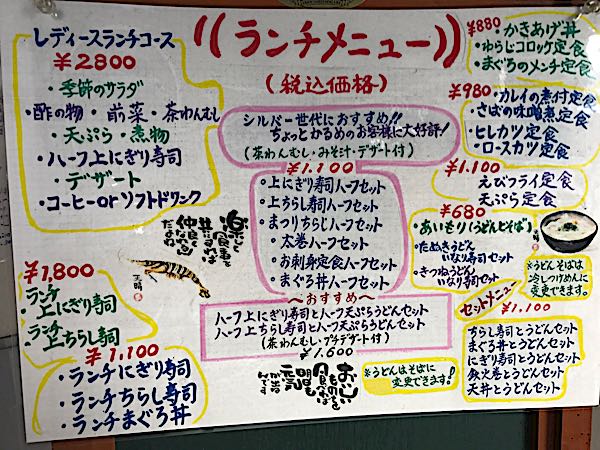 ランチメニュー
(税込価格)
レディースランチコース
¥2800
・季節のサラダ
・酢の物・前菜・茶わんむし
・天ぷら・煮物
・ハーフ上にぎり寿司
・デザート
・コーヒーorソフトドリンク
¥880
・かきあげ丼
・わらじコロッケ定食
・まぐろのメンチ定食
¥980
・カレイの煮付定食
・さばの味噌煮定食
・ヒレカツ定食
・ロースカツ定食
¥1.100
えびフライ定食
天ぷら定食
シルバー世代におすすめ!!
ちょっとかるめのお客様に大好評!
(茶わんむし・みそ汁・デザート付)
¥1.100
・上にぎり寿司ハーフセット
・上ちらし寿司ハーフセット
・まつりちらしハーフセット
・太巻ハーフセット
・お刺身定食ハーフセット
・まぐろ丼ハーフセット
〜おすすめ〜
ハーフ上にぎり寿司とハーフ天ぷらうどんセット
ハーフ上ちらし寿司とハーフ天ぷらうどんセット
(茶わんむし・プチデザート付)
¥1.600
¥680
・あいもり(うどんとそば)
・たぬきうどん
いなり寿司セット
・きつねうどん
いなり寿司セット
※うどんそばは
冷しつけめんに
変更できます。
セットメニュー
¥1.100
ちらし寿司とうどんセット
まぐろ丼とうどんセット
にぎり寿司とうどんセット
鉄火巻とうどんセット
天丼とうどんセット
※うどんはそばに
変更できます!
¥1,800
ランチ
・上にぎり寿司
ランチ
・上ちらし寿司
¥1.100
・ランチにぎり寿司
・ランチちらし寿司
・ランチまぐろ丼
楽しく
食事を
すれば
仲良く
なれる
だよね
おいしい
ものを
食べれば
明日も
元気
が出る
んです